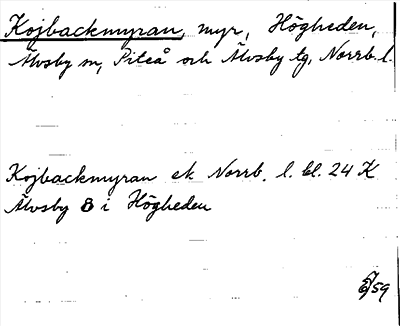 Kojbackmyran, myr, Högheden,
Älvsby sn, Piteå och Älvsby tg, Norrb. l.
Kojbackmyran ek Norrb. l. bl. 24 K
Älvsby B i Högheden
/59